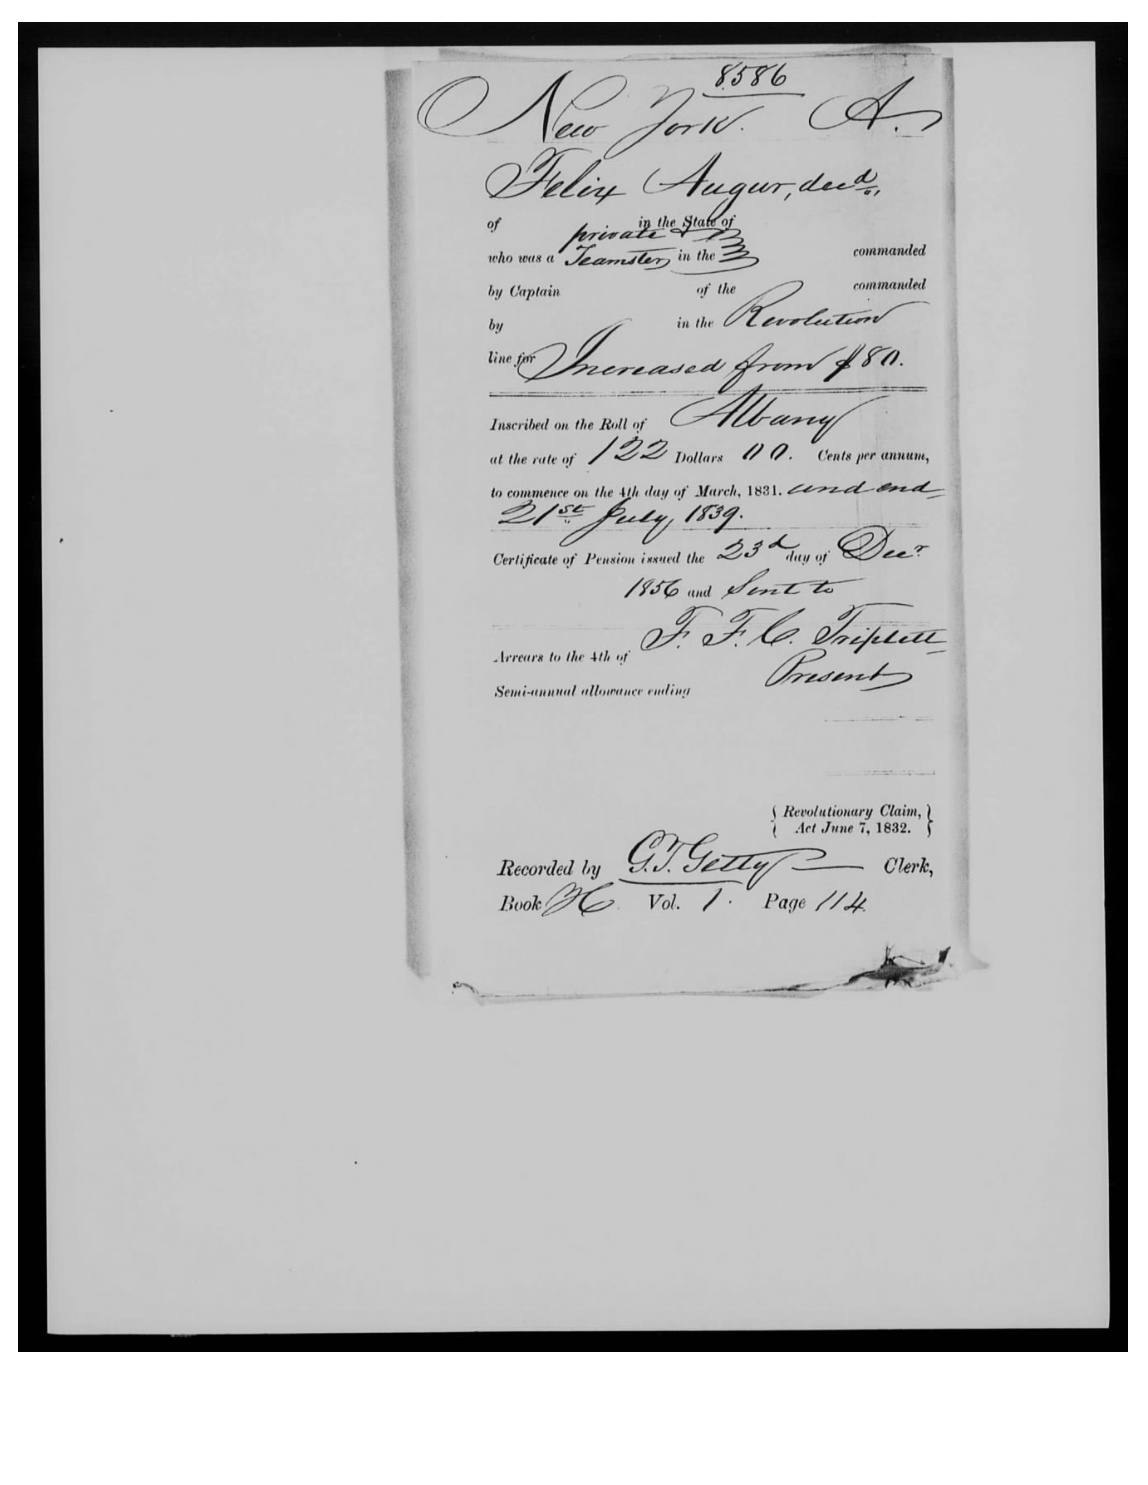 8586
New York. A.
Felix Augur, decd.,
of in the State of
private &
who was a Teamster, in the commanded
by Captain of the commanded
by in the Revolution
line for Increased from $80.
Inscribed on the Roll of Albany
at the rate of 122 Dollars 00. Cents per annum,
to commence on the 4th day of March, 1831. and end
21st July, 1839.
Certificate of Pension issued the 23d day of Decr
1856 and Sent to
F. F. C. Triplett
Arrears to the 4th of
Present
Semi-annual allowance ending
{ Revolutionary Claim, }
{ Act June 7, 1832. }
Recorded by G.T. Getty Clerk,
Book Vol. 1. Page 114